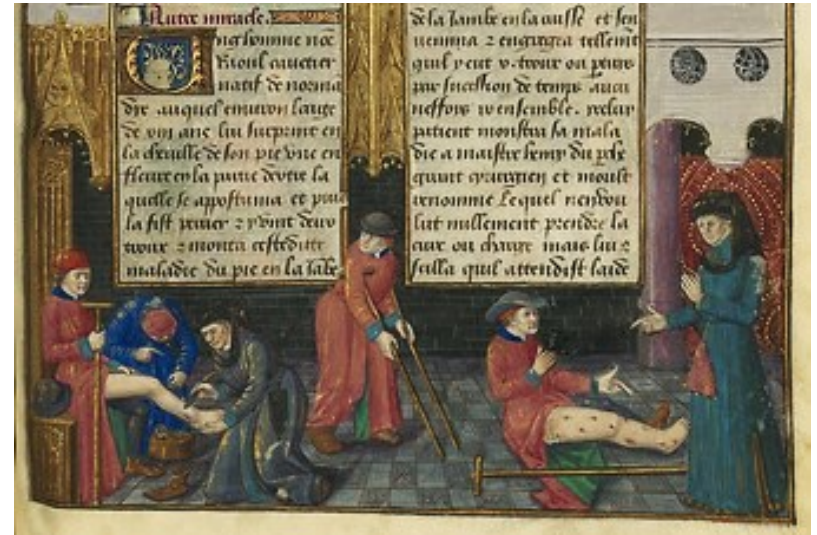 Autre miracle.
Ung homme nōe
Rioul cauetier
natif de norma
die auquel enuiron laage
de viii ans lui surprint en
la cheuille de son pie vne en
fleure en la partie destre la
quelle se appostuma et puis
la fist percer z y vint deux
troux z monta cestedicte
maladie du pie en la Iābe
de la Iambe en la cuisse et sen
uenima z engregra tellemt
quil y eut v. troux ou ptuis
par succession de temps aucu
neffois ensemble. Icelui
patient monstra sa mala
die a maistre henry du
grant cyrurgien et moult
renomme Lequel nen vou
lut nullement prendre la
cure ou charge mais lui z
seilla quil attendist laide